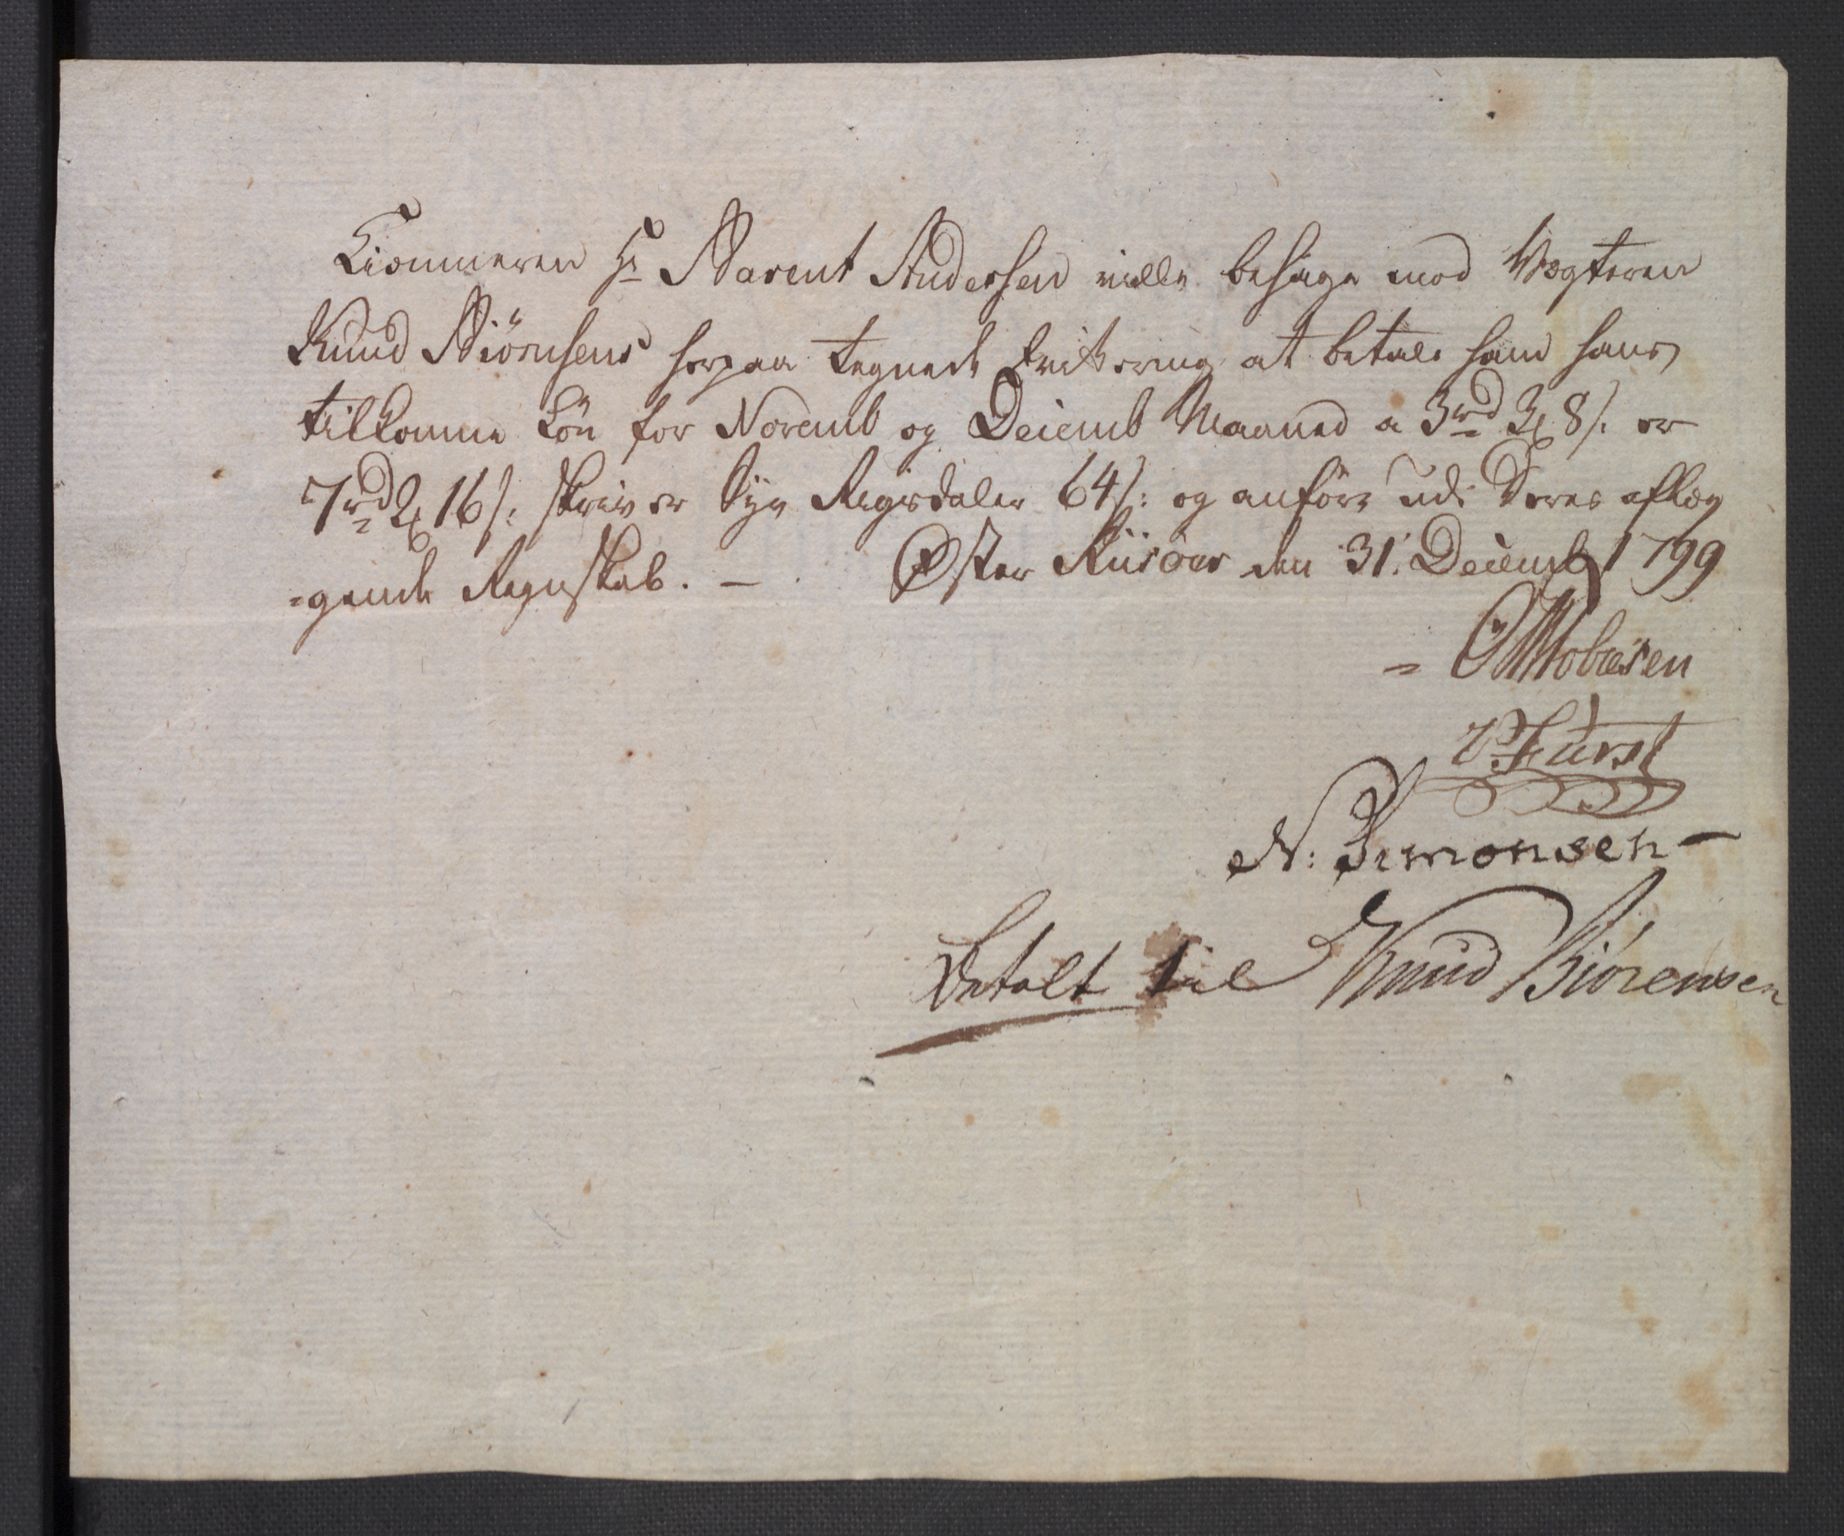 Kiemneren Hr Barent Andersen ville behage mod Vægteren
Knud Biörnsens herpaa tegnede Qvitering at betale ham hans
tilkomne Lön for Novemb og Decemb Maaned a 3rd 3 8 s: er
7rd 16 s: skriver Syv Rigsdaler 64 s: og anföre udi Deres aflæg
=gende Regnskab. — Øster Riisöer den 31. Decemb 1799
Tobiesen
Fürst
N: Simonsen
Betalt til Knud Biörensen